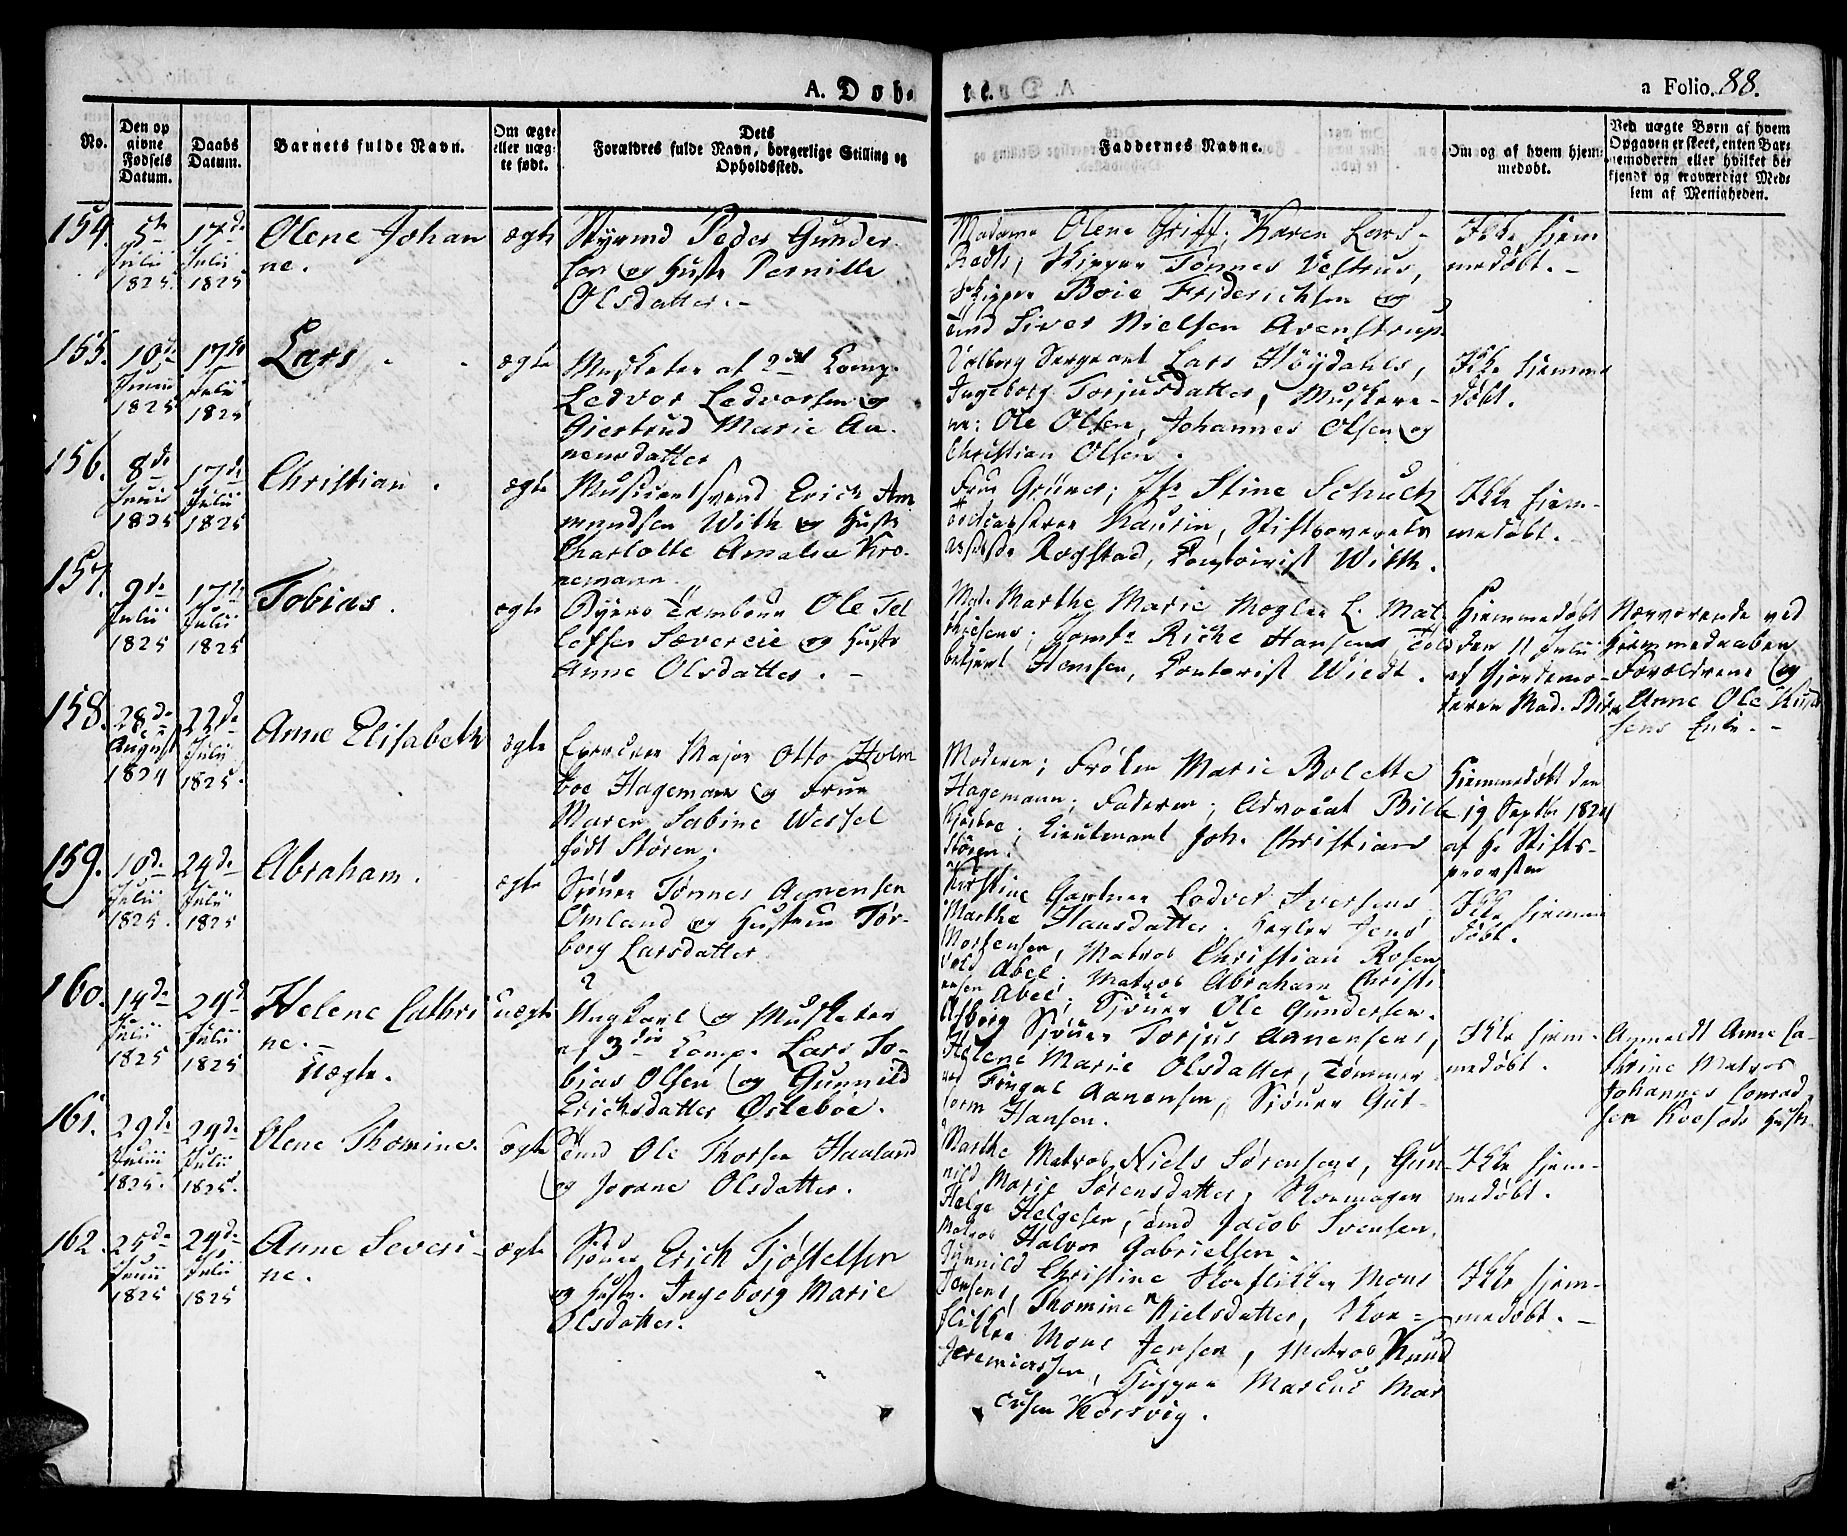 A. Døbte.
a Folio. 88.
No.
Den opgivne Fødsels Datum.
Daabs Datum.
Barnets fulde Navn.
Om ægte eller uægte født.
Dets Forældres fulde Navn, borgerlige Stilling og Opholdssted.
Faddernes Navne.
Om og af hvem hjemmedøbt.
Ved uægte Børn af hvem Opgaven er skeet, enten Barnemoderen eller hvilket bekjendt og troværdigt Medlem af Menigheden.
154.
5te Julii 1825.
17de Julii 1825
Olene Johan
ne.
ægte
Styrmd Peder Gunder-
sen og Hustr Pernille
Olsdatter. -
Madame Olene Griff, Karen Lars-
Skipper Tønnes Vestrus,
Skipper Boie Friderichsen og
Tmd Siver Nielsen Avenstrup
Ikke hjem
medøbt. -
155.
10de Junii 1825
17de Julii 1825
Lars
ægte
Musketer af 2det Comp.
Ledvor Ledvorsen og
Giertrud Marie Aa-
nensdatter
Valborg Sergeant Lars Høydahls,
Ingeborg Torjusdatter, Muskete-
re: Ole Olsen, Johannes Olsen og
Christian Olsen.
Ikke hjemme
døbt.
156.
8de Junii 1825
17de Julii 1825
Christian.
ægte
Musicantsvend Erich Am
mundsen With og Hustr
Charlotte Amalia Kro-
nemann.
Frue Grüner; Jfr Stine Schultz
Kaurin, Stiftsoverrets
Rogstad, Contoirist With.
Ikke hjem-
medøbt.
157.
9de Julii 1825
17de Julii 1825
Tobias.
ægte
Byens Tambour Ole Tel
lefsen Sævereie og Hustr
Anne Olsdatter. -
Mad. Marthe Marie Mogler L. Mat
thiesens; Jomfr Riche Hansens, Told
betjent Hemsen, Contorist Wiedt.
Hjemmedøbt
den 11 Julii
af Gjordemo-
deren Mad. Birn
Nærværende ved
Hjemmedaaben
Forældrene og
Anne Ole Knud
sens Enke. -
158.
28de August 1824
22de Julii 1825.
Anne Elisabeth
ægte
Major Otto Holm
boe Hagemann og Frue
Maren Sabine Wessel
født Støren.
Moderen; Frøken Marie Bolette
Hagemann; Faderen; Advocat Bille
Kjørboe; Lieutenant Joh. Christian
Støren.
Hjemmedøbt den
19 Septbr 1824
af Hr Stifts-
provsten
159.
10de Julii 1825.
24de Julii 1825
Abraham.
ægte
Sjøuer Tønnes Aanensen
Omland og Hustru Tor-
borg Larsdatter
Kirstine Gartner Ledver Iversens,
Marthe Hansdatter, Jens
Mortensen, Matros Christian Rosen
vold Abel; Matros Abraham Christi
ensen Abel; Sjøuer Ole Gundersen.
Ikke hjemme
døbt.
160.
14de Julii 1825
24de Julii 1825
Helene Cathri
ne. -
Uægte.
uægte
Ungkarl og Musketer
af 3die Comp. Lars To-
bias Olsen og Gunnild
Erichsdatter Østebøe.
Asborg Sjøuer Torjus Aanensens,
Helene Marie Olsdatter, Tømmer-
md Fingal Aanensen, Sjøuer Gut-
torm Hansen.
Ikke hjem-
medøbt.
Anmeldt Anne Ca-
thrine Matros
Johannes Conrad
sen Hustr.
161.
29de Julii 1825.
24de Julii 1825.
Olene Thomine.
Ægte
Tmd Ole Thorsen Haaland
og Jorane Olsdatter.
Marthe Matros Niels Sørensens, Gun-
nild Marie Sørensdatter, Skomager
Helge Helgesen, Tmd Jacob Svensen,
Matros Halvor Gabrielsen.
Ikke hjem-
medøbt.
162.
25de Junii 1825
24de Julii 1825
Anne Severi-
ne.
ægte
Sjøuer Erich Tjøstelsen
og Hustr. Ingeborg Marie
Olsdatter.
Gunnild Christine Skoflikker Mons
Jensens, Thomine Nielsdatter, Sko-
flikker Mons Jensen, Matros Knud
Jeremiassen, Marcus Mar
cusen Korsvig.
Ikke hjem-
medøbt. -